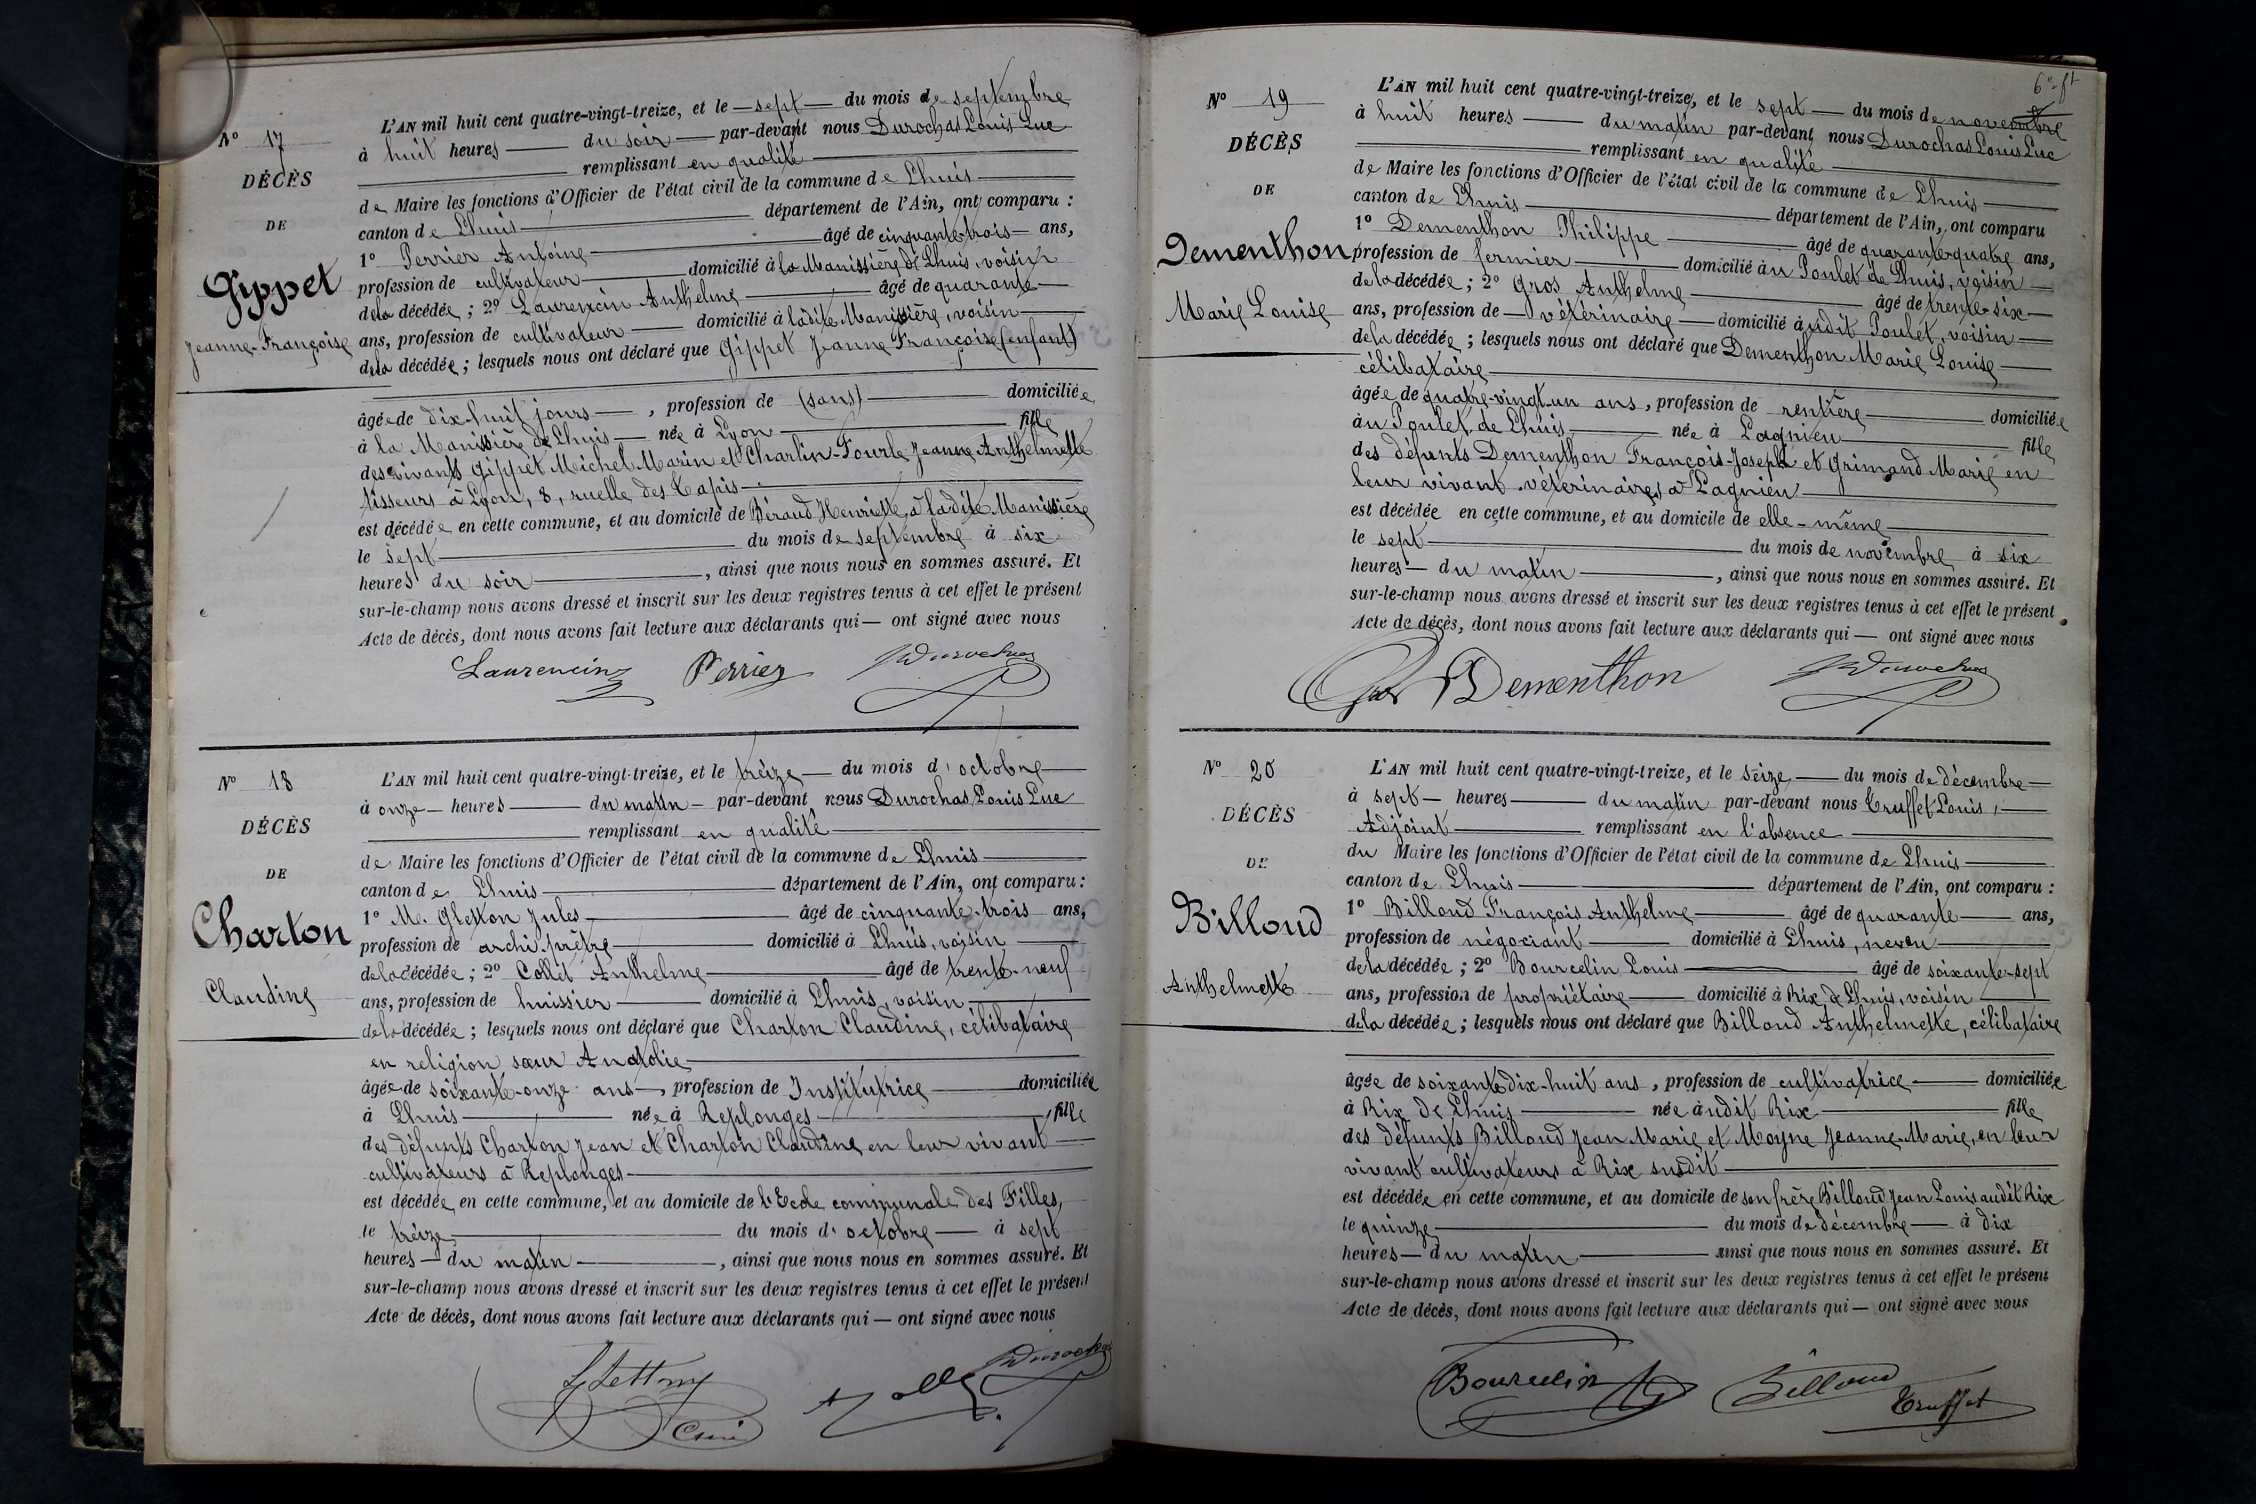 N° 17
DÉCÈS
DE
Gippet
Jeanne-Françoise
L'AN mil huit cent quatre-vingt-treize, et le sept du mois de septembre
à huit heures du soir par-devant nous Durochas Louis Luc
remplissant en qualité
de Maire les fonctions d'Officier de l'état civil de la commune de Lhuis
canton de Lhuis département de l'Ain, ont comparu :
1° Perrier Antoine âgé de cinquante-trois ans,
profession de cultivateur domicilié à la Manissière de Lhuis, voisin
de la décédée ; 2° Laurencin Anthelme âgé de quarante
ans, profession de cultivateur domicilié à ladite Manissière, voisin
de la décédée ; lesquels nous ont déclaré que Gippet Jeanne Françoise (enfant)
âgée de dix-huit jours , profession de (sans) domiciliée
à la Manissière de Lhuis née à Lyon fille
des vivants Gippet Michel Marin et Charlin-Fourle Jeanne Anthelmette
tisseurs à Lyon, 8, ruelle des Tapis
est décédée en cette commune, et au domicile de Béraud Henriette, à ladite Manissière
le sept du mois de septembre à six
heures du soir , ainsi que nous nous en sommes assuré. Et
sur-le-champ nous avons dressé et inscrit sur les deux registres tenus à cet effet le présent
Acte de décès, dont nous avons fait lecture aux déclarants qui — ont signé avec nous
Laurencin Perrier Durochas
N° 18
DÉCÈS
DE
Charton
Claudine
L'AN mil huit cent quatre-vingt-treize, et le treize du mois d'octobre
à onze heures du matin par-devant nous Durochas Louis Luc
remplissant en qualité
de Maire les fonctions d'Officier de l'état civil de la commune de Lhuis
canton de Lhuis département de l'Ain, ont comparu :
1° M. Gletton Jules âgé de cinquante-trois ans,
profession de archiprêtre domicilié à Lhuis, voisin
de la décédée ; 2° Collet Anthelme âgé de trente-neuf
ans, profession de huissier domicilié à Lhuis, voisin
de la décédée ; lesquels nous ont déclaré que Charton Claudine, célibataire
en religion sœur Anatolie
âgée de soixante-onze ans , profession de Institutrice domiciliée
à Lhuis née à Replonges fille
des défunts Charton Jean et Charton Claudine en leur vivant
cultivateurs à Replonges
est décédée en cette commune, et au domicile de l'Ecole communale des Filles,
le treize du mois d'octobre à sept
heures du matin , ainsi que nous nous en sommes assuré. Et
sur-le-champ nous avons dressé et inscrit sur les deux registres tenus à cet effet le présent
Acte de décès, dont nous avons fait lecture aux déclarants qui — ont signé avec nous
Durochas
N° 19
DÉCÈS
DE
Dementhon
Marie Louise
L'AN mil huit cent quatre-vingt-treize, et le sept du mois de novembre
à huit heures du matin par-devant nous Durochas Louis Luc
remplissant en qualité
de Maire les fonctions d'Officier de l'état civil de la commune de Lhuis
canton de Lhuis département de l'Ain, ont comparu
1° Dementhon Philippe âgé de quarante-quatre ans,
profession de fermier domicilié au Poulet de Lhuis, voisin
de la décédée ; 2° Gros Anthelme âgé de trente-six
ans, profession de vétérinaire domicilié audit Poulet, voisin
de la décédée ; lesquels nous ont déclaré que Dementhon Marie Louise
célibataire
âgée de quatre-vingt-un ans , profession de rentière domiciliée
au Poulet de Lhuis née à Lagnieu fille
des défunts Dementhon François-Joseph et Grimand Marie en
leur vivant vétérinaires à Lagnieu
est décédée en cette commune, et au domicile de elle-même
le sept du mois de novembre à six
heures du matin , ainsi que nous nous en sommes assuré. Et
sur-le-champ nous avons dressé et inscrit sur les deux registres tenus à cet effet le présent
Acte de décès, dont nous avons fait lecture aux déclarants qui — ont signé avec nous
Gros Dementhon Durochas
N° 20
DÉCÈS
DE
Billoud
Anthelmette
L'AN mil huit cent quatre-vingt-treize, et le seize du mois de décembre
à sept heures du matin par-devant nous Truffet Louis,
Adjoint remplissant en l'absence
du Maire les fonctions d'Officier de l'état civil de la commune de Lhuis
canton de Lhuis département de l'Ain, ont comparu :
1° Billoud François Anthelme âgé de quarante ans,
profession de négociant domicilié à Lhuis, neveu
de la décédée ; 2° Bourcelin Louis âgé de soixante-sept
ans, profession de propriétaire domicilié à Rix de Lhuis, voisin
de la décédée ; lesquels nous ont déclaré que Billoud Anthelmette, célibataire
âgée de soixante-dix-huit ans , profession de cultivatrice domiciliée
à Rix de Lhuis née audit Rix fille
des défunts Billoud Jean Marie et Moyne Jeanne-Marie, en leur
vivant cultivateurs à Rix susdit
est décédée en cette commune, et au domicile de son frère Billoud Jean Louis audit Rix
le quinze du mois de décembre à dix
heures du matin ainsi que nous nous en sommes assuré. Et
sur-le-champ nous avons dressé et inscrit sur les deux registres tenus à cet effet le présent
Acte de décès, dont nous avons fait lecture aux déclarants qui — ont signé avec nous
Bourcelin Billoud Truffet